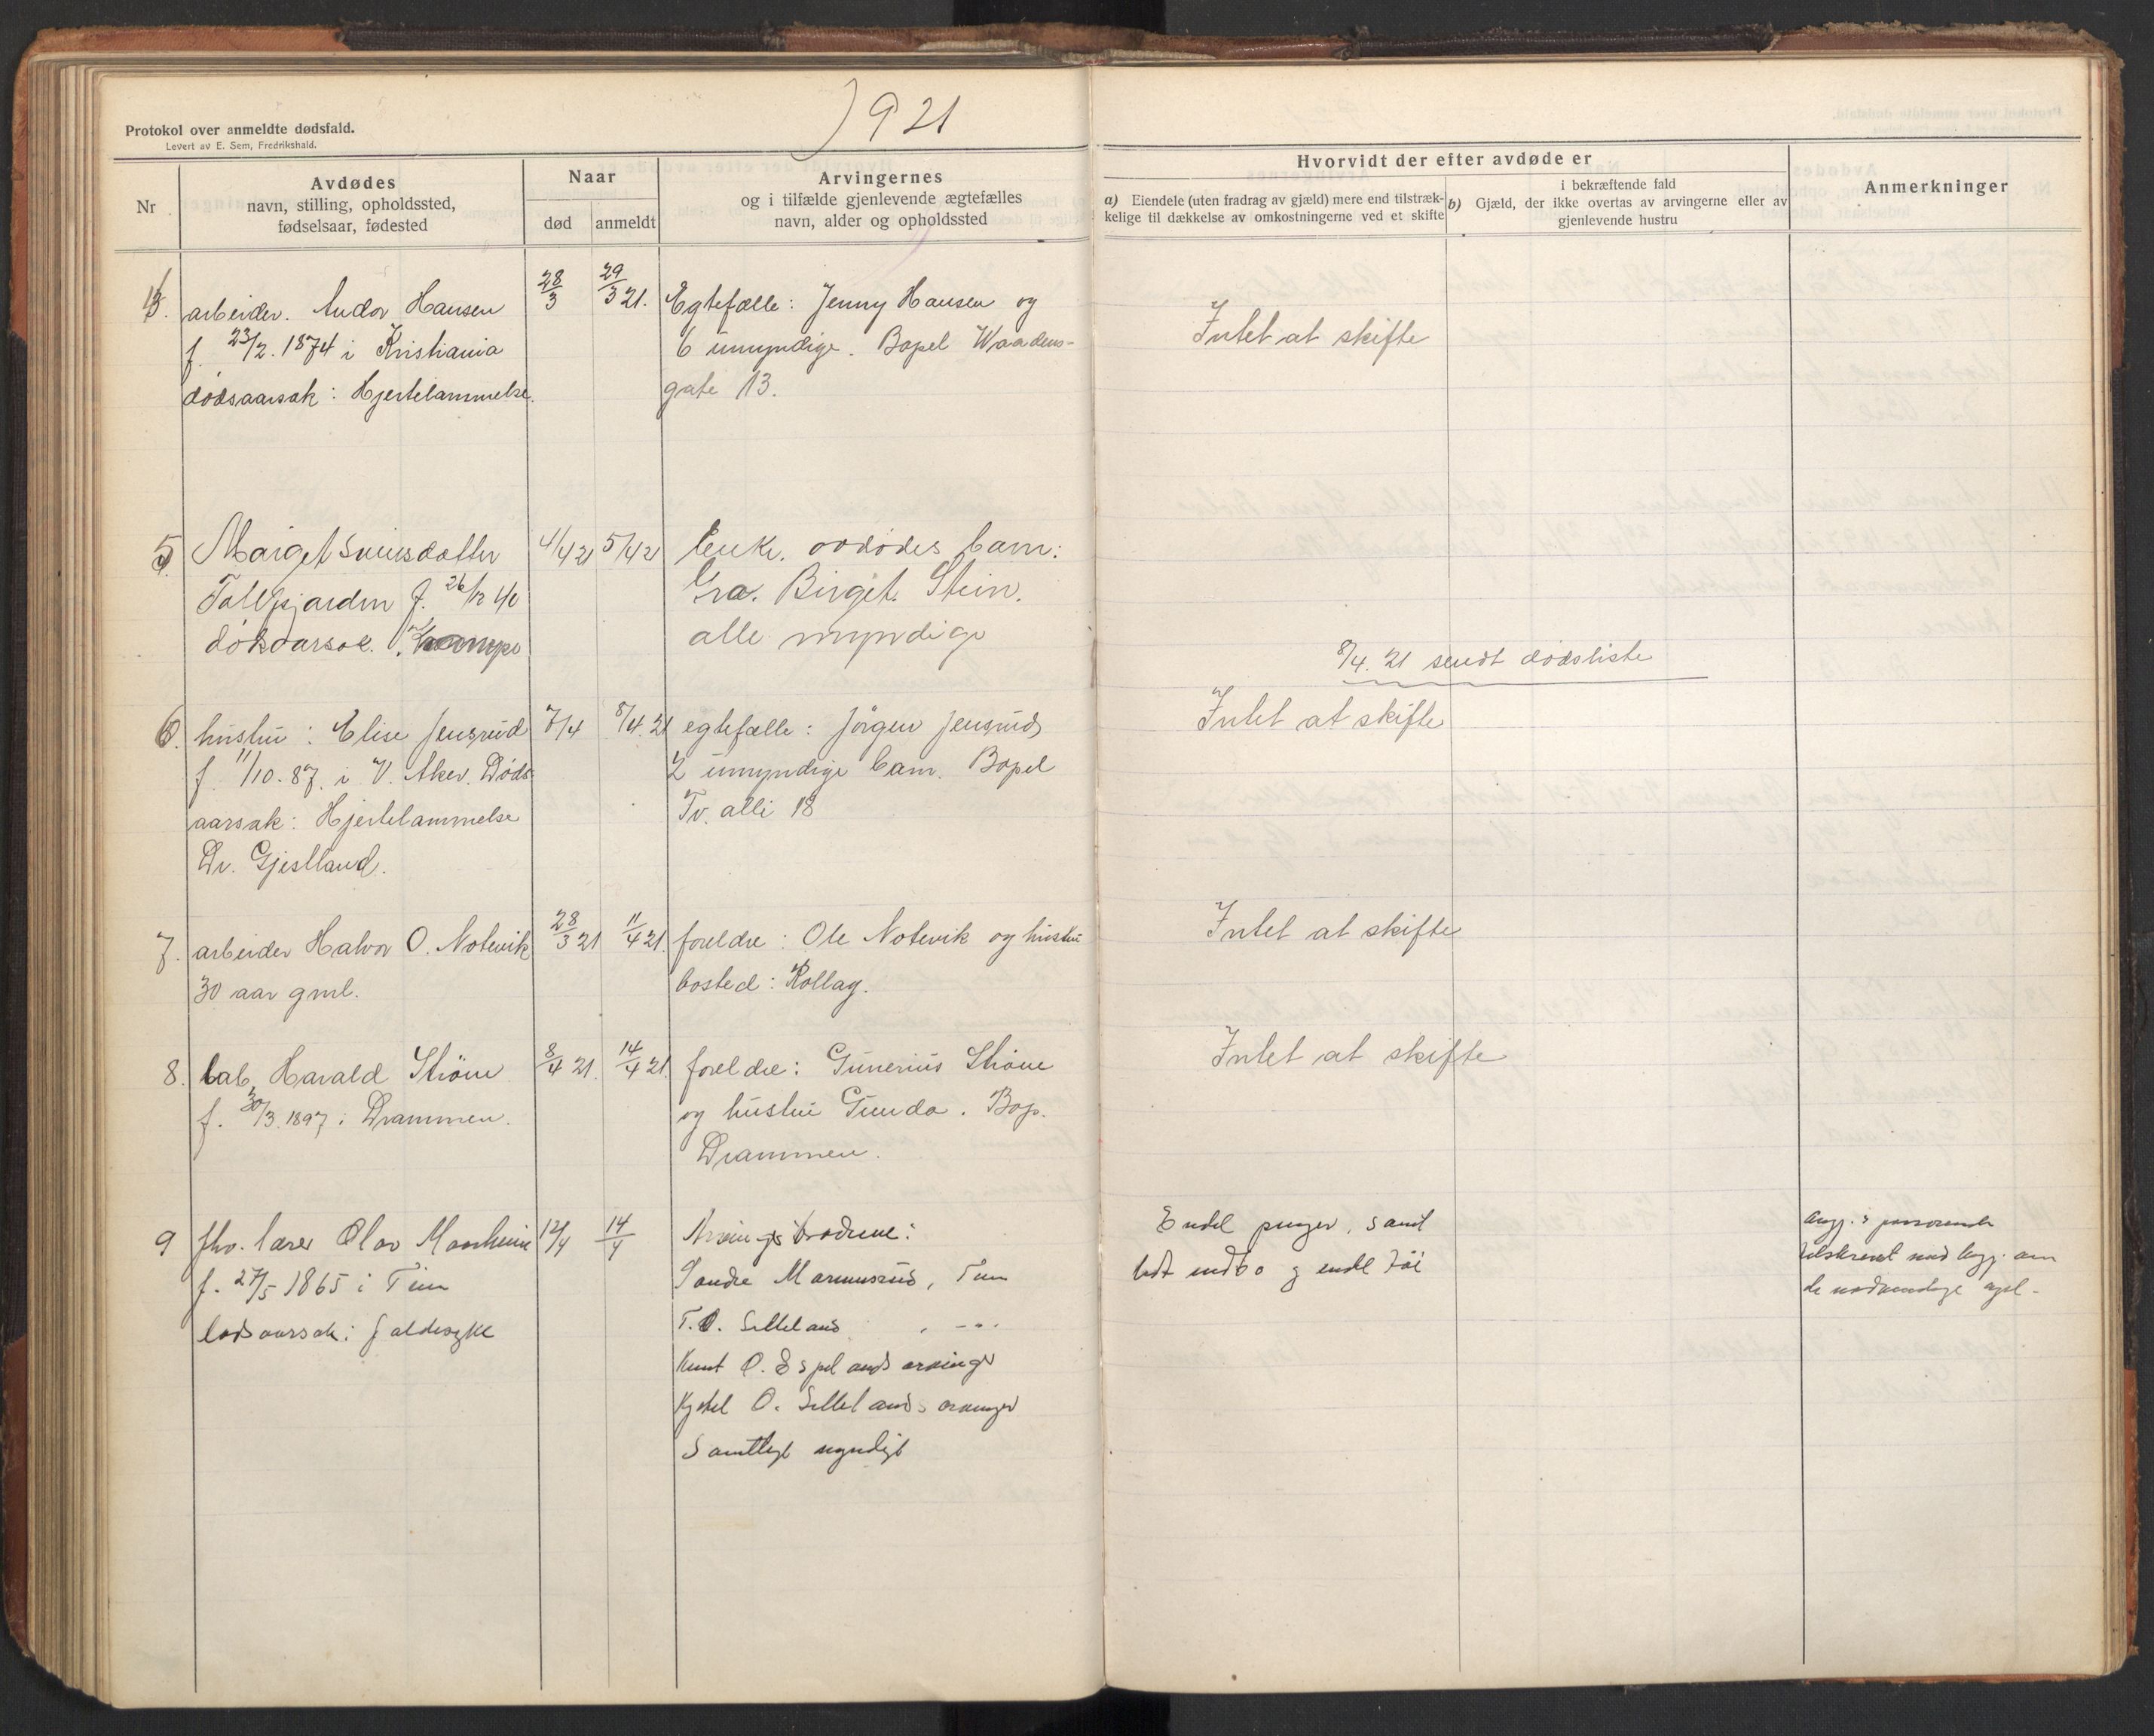 1921
Protokol over anmeldte dødsfald.
Levert av E. Sem, Fredrikshald.
Nr
Avdødes
navn, stilling, opholdssted,
fødselsaar, fødested
Naar
død
anmeldt
Arvingernes
og i tilfælde gjenlevende ægtefælles
navn, alder og opholdssted
Hvorvidt der efter avdøde er
a) Eiendele (uten fradrag av gjæld) mere end tilstræk-
kelige til dækkelse av omkostningerne ved et skifte
i bekræftende fald
b) Gjæld, der ikke overtas av arvingerne eller av
gjenlevende hustru
Anmerkninger
arbeider. Andor Hansen 28/3 29/3 21. Egtefælle: Jenny Hansen og
f. 23/2. 1874 i Kristiania 6 umyndige. Bopel Waadens-
dødsaarsak: Hjertelammelse. gate 13.
Intet at skifte
5. Marget Sveinsdatter 4/4 21 5/4 21 Enke. avdødes barn:
f. 26/12 40 Gro. Birget. Stein.
alle myndige
8/4. 21 sendt dødsliste
6. hustru: Elise Jensrud 7/4 8/4 21 egtefælle: Jörgen Jensrud
f. 11/10. 87. i V. Aker. Døds- 2 umyndige barn. Bopel
aarsak: Hjertelammelse Tv. alle 18
Dr. Gjestland.
Intet at skifte
7. arbeider Halvor O. Notevik 28/3 21 11/4 21. foreldre: Ole Notevik og hustru
30 aar gml. bosted: Rollag.
Intet at skifte
8. Harald Ström 8/4 21. 14/4 21. foreldre: Gunerius Ström
f. 30/3. 1897 i Drammen. og hustru Gunda. Bop.
Drammen.
Intet at skifte
9 fhv. lærer Olav Maarheim 12/4 14/4
f. 27/5 1865 i Tinn Sondre Marumsrud, Tinn
T. O. Selleland
Knut O. Espelands arvinger
Kjetel O. Sellelands arvinger
Samtlige myndige
Endel penger, samt
lidt indbo og endel töi